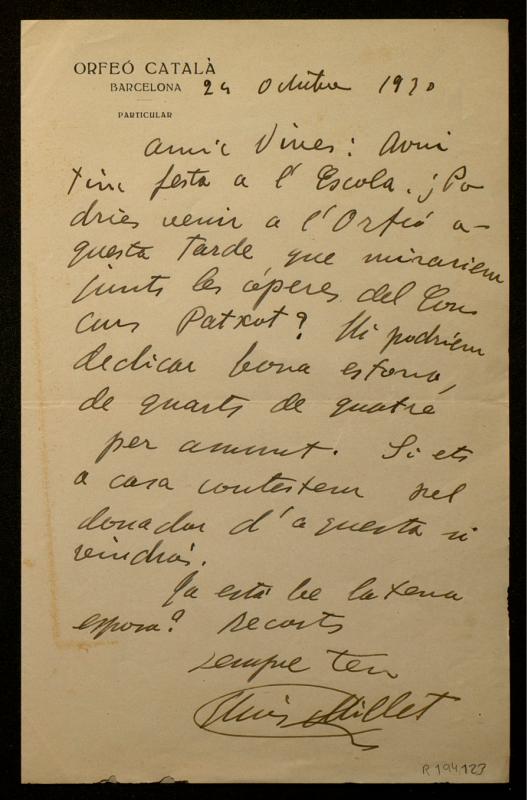 ORFEÓ CATALÀ
BARCELONA 24 Octubre 1930
PARTICULAR
Amic Vines: Avui
tinc festa a l'Escola. ¿Po
dries venir a l'Orfeó a-
questa tarde que mirariem
junts les óperes del Con
curs Patxot? Hi podriem
dedicar bona estona,
de quarts de quatre
per amunt. Si ets
a casa contestem pel
donador d'aquesta si
vindràs.
Ja està be la teva
esposa? Recorts
sempre teu
Lluis Millet
R 194.123